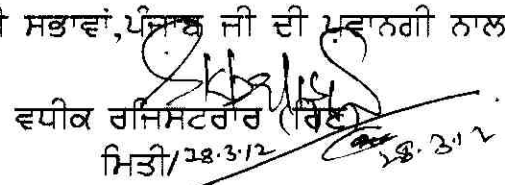 ਸਭਾਵਾਂ,ਪੰਜਾਬ ਜੀ ਦੀ ਪ੍ਰਵਾਨਗੀ ਨਾਲ
ਵਧੀਕ ਰਜਿਸਟਰਾਰ
ਮਿਤੀ/28.3.12 28.3.12